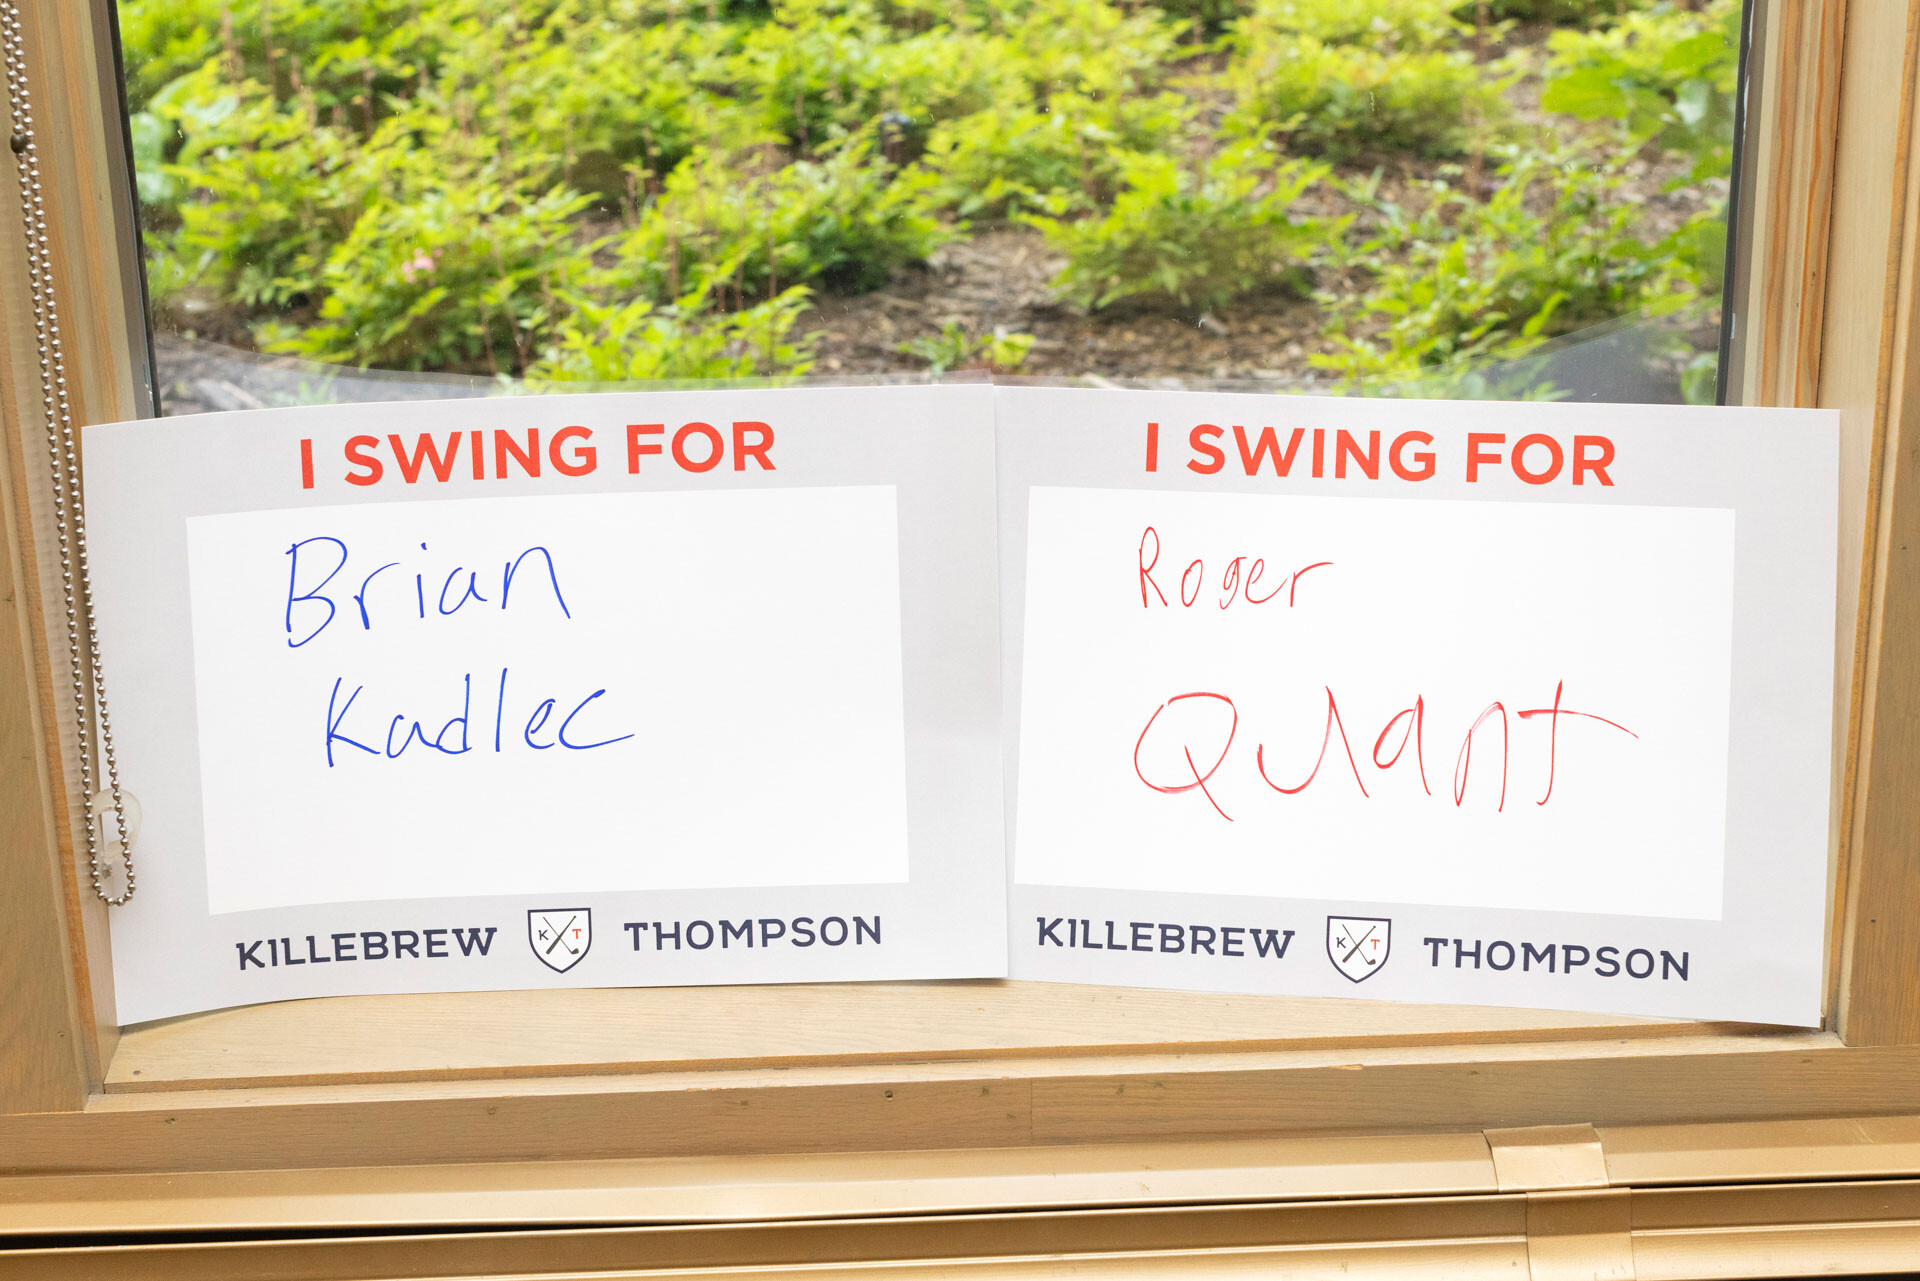 I SWING FOR
Brian
Kadlec
KILLEBREW K T THOMPSON
I SWING FOR
Roger
Quant
KILLEBREW K T THOMPSON